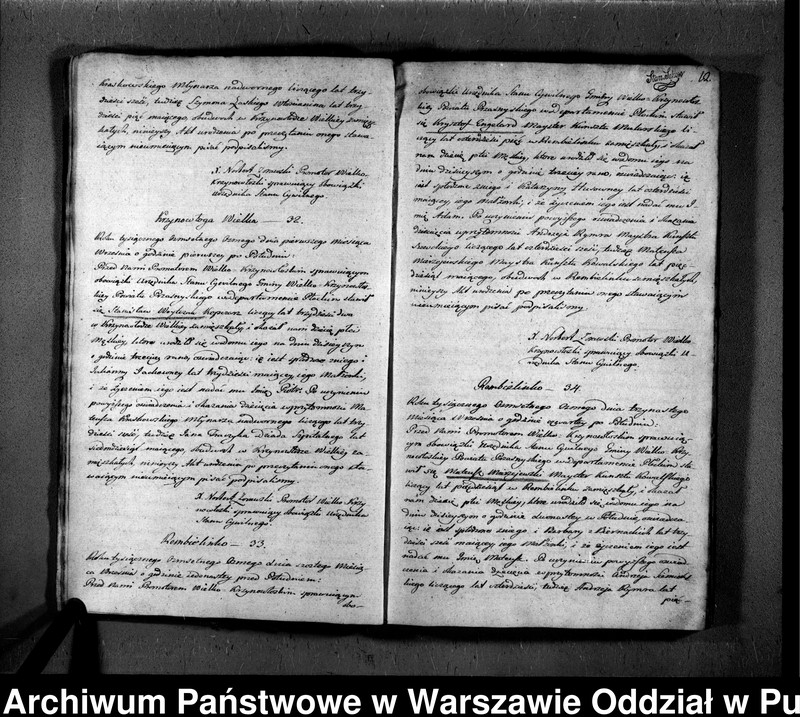 Kraskowskiego Młynarza nadwornego liczącego lat trzy-
dzieści sześć, tudzież Szymona Łaskiego Włościanina lat trzy-
dzieści pięć mającego obudwuch w Krzynowłodze Wielkiey zamiesz-
kałych, ninieyszy Akt urodzenia po przeczytaniu onego stawa-
iącym nieumieiącym pisać podpisaliśmy.
X. Norbert Promotor Wielko-
Krzynowłoski sprawuiący obowiązki
Urzędnika Stanu Cywilnego.
Krzynowłoga Wielka — 32.
Roku tysiącznego osmsetnego osmego dnia pierwszego Miesiąca
Września o godzinie pierwszey po Południu:
Przed Nami Promotorem Wielko-Krzynowłoskim sprawuiącym
obowiązki Urzędnika Stanu Cywilnego Gminy Wielko-Krzynowłos-
kiey Powiatu Przasnyskiego w departamencie Płockim stawił
się Stanisław liczący lat trzydzieści dwa
w Krzynowłodze Wielkiey zamieszkały i okazał nam dziecię płci
Męskiey, które urodziło się w domu iego na dniu dzisieyszym
o godzinie trzeciey rano, oświadczaiąc iż iest spłodzone z niego i
Julianny lat trzydzieści maiącey iego Małżonki,
i że życzeniem iego iest nadać mu Imię Piotr. Po uczynieniu
powyższego oświadczenia i okazania dziecięcia w przytomności Ma-
teusza Kraskowskiego Młynarza nadwornego liczącego lat trzy-
dzieści sześć, tudzież Jana Dziada Szpitalnego lat
siedmdziesiąt maiącego obudwuch w Krzynowłodze Wielkiey za-
mieszkałych, ninieyszy Akt urodzenia po przeczytaniu onego sta-
waiącym nieumieiącym pisać podpisaliśmy.
X. Norbert Promotor Wielko-Krzy-
nowłoski sprawuiący obowiązki Urzędnika
Stanu Cywilnego.
Rembielinko — 33.
Roku tysiącznego osmsetnego osmego dnia szóstego Miesią-
ca Września o godzinie iedenastey przed Południem:
Przed Nami Promotorem Wielko-Krzynowłoskim sprawuiącym
obo-
12.
obowiązki Urzędnika Stanu Cywilnego Gminy Wielko-Krzynowłos-
kiey Powiatu Przasnyskiego w departamencie Płockim stawił
się Krzysztof Engelard Mayster Kunsztu Malarskiego li-
czący lat czterdzieści pięć w Rembielinku zamieszkały i okazał
nam dziecię płci Męskiey, które urodziło się w domu iego na
dniu dzisieyszym o godzinie trzeciey rano, oświadczaiąc iż
iest spłodzone z niego i Katarzyny lat czterdzieści
maiącey iego Małżonki, i że życzeniem iego iest nadać mu I-
mię Adam. Po uczynieniu powyższego oświadczenia i okazania
dziecięcia w przytomności Andrzeia Rymra Maystra Kunsztu
liczącego lat czterdzieści sześć, tudzież Mateusza
Marszewskiego Maystra Kunsztu Kowalskiego lat pięć-
dziesiąt maiącego, obudwuch w Rembielinku zamieszkałych,
ninieyszy Akt urodzenia po przeczytaniu onego stawaiącym
nieumieiącym pisać podpisaliśmy
X. Norbert Promotor Wielko
Krzynowłoski sprawuiący obowiązki U-
rzędnika Stanu Cywilnego.
Rembielinko — 34.
Roku tysiącznego osmsetnego osmego dnia trzynastego
Miesiąca Września o godzinie czwartey po Południu.
Przed Nami Promotorem Wielko-Krzynowłoskim sprawuią-
cym obowiązki Urzędnika Stanu Cywilnego Gminy Wielko-Krzy-
nowłoskiey Powiatu Przasnyskiego w departamencie Płockim sta-
wił się Mateusz Marszewski Mayster Kunsztu Kowalskiego
liczący lat pięćdziesiąt w Rembielinku zamieszkały, i okazał
nam dziecię płci Męskiey, które urodziło się w domu iego na
dniu dzisieyszym o godzinie dwunastey w Południe, oświadcza-
iąc iż iest spłodzone z niego i Barbary z Biernackich lat trzy-
dzieści sześć maiącey iego Małżonki, i że życzeniem iego iest
nadać mu Imię Mateusz. Po uczynieniu powyższego oświad-
czenia i okazania dziecięcia w przytomności Andrzeia
liczącego lat czterdzieści, tudzież Andrzeia Rymra lat
pięć-
Archiwum Państwowe w Warszawie Oddział w Pu